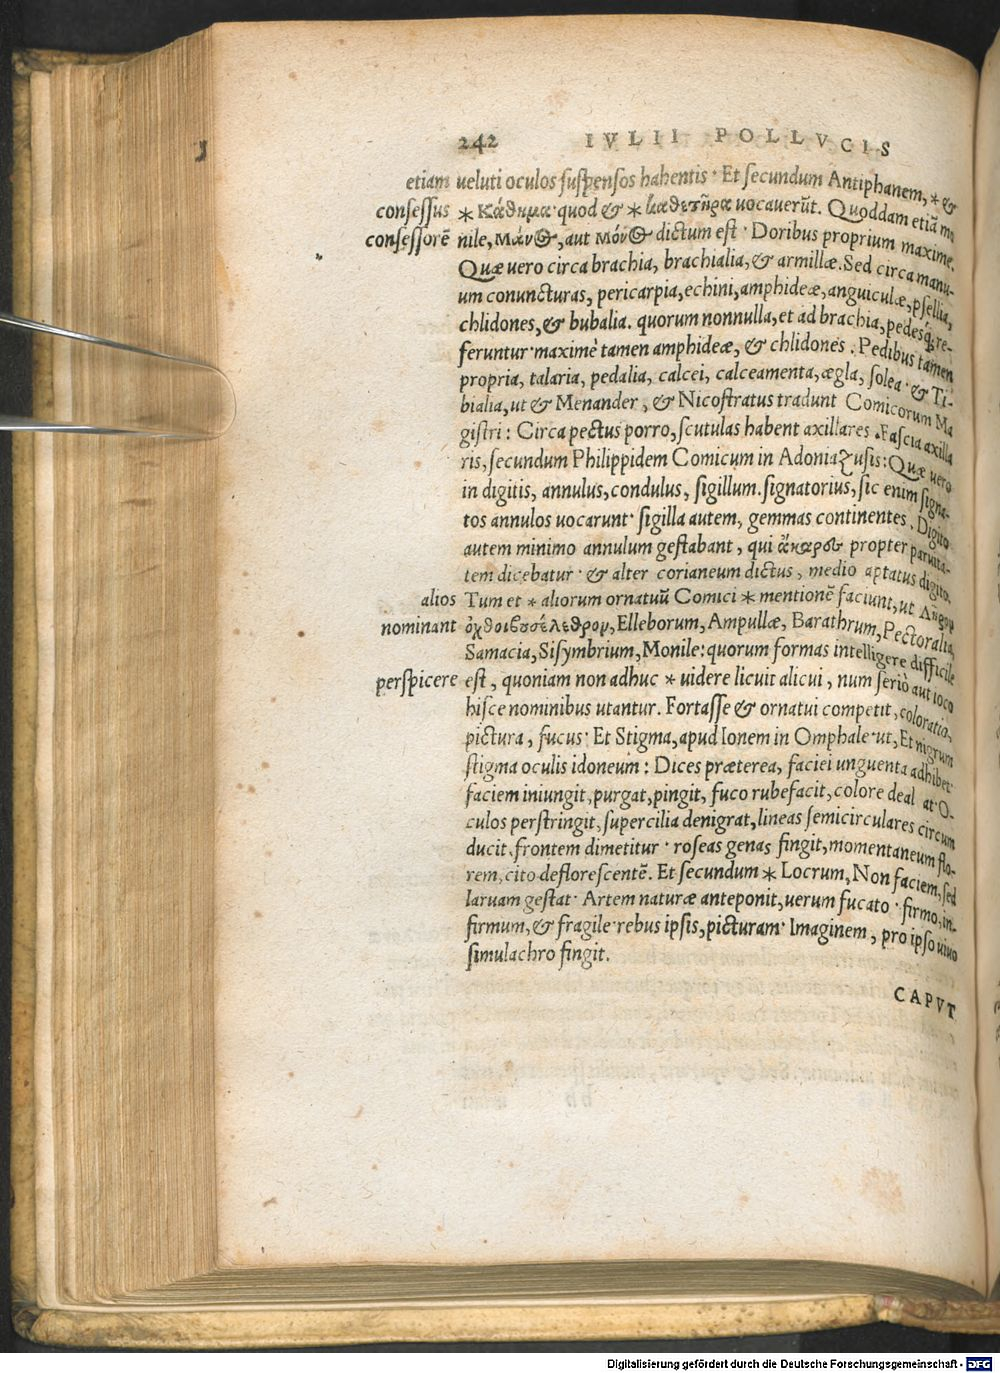 242 IVLII POLLVCIS
etiam ueluti oculos suspensos habentis· Et secundum Antiphanem, * &
consessus * κάθημα· quod & * καθετῆρα uocauerũt. Quoddam etiã mo
consessorẽ nile, μάνος, aut μόνος dictum est· Doribus proprium maxime.
Quæ uero circa brachia, brachialia, & armillæ. Sed circa manu-
um coniuncturas, pericarpia, echini, amphideæ, anguiculæ, psellia,
chlidones, & bubalia. quorum nonnulla, et ad brachia, pedesq́; re-
feruntur· maximè tamen amphideæ, & chlidones. Pedibus tamen
propria, talaria, pedalia, calcei, calceamenta, ægla, solea· & Ti-
bialia, ut & Menander, & Nicostratus tradunt Comicorum Ma
gistri: Circa pectus porro, scutulas habent axillares. Fascia axilla
ris, secundum Philippidem Comicum in Adoniazusis: Quæ uero
in digitis, annulus, condulus, sigillum. signatorius, sic enim signa-
tos annulos uocarunt· sigilla autem, gemmas continentes. Digito
autem minimo annulum gestabant, qui ἄκαρος propter paruita-
tem dicebatur· & alter corianeum dictus, medio aptatus digito.
alios Tum et * aliorum ornatuũ Comici * mentionẽ faciunt, ut
nominant Elleborum, Ampullæ, Barathrum, Pectoralia,
Samacia, Sisymbrium, Monile: quorum formas intelligere difficile
perspicere est, quoniam non adhuc * uidere licuit alicui, num seriò aut ioco
hisce nominibus utantur. Fortasse & ornatui competit, coloratio,
pictura, fucus· Et Stigma, apud Ionem in Omphale· ut, Et nigrum
stigma oculis idoneum: Dices præterea, faciei unguenta adhibet·
faciem iniungit, purgat, pingit, fuco rubefacit, colore deal at· O-
culos perstringit, supercilia denigrat, lineas semicirculares circum
ducit. frontem dimetitur· roseas genas fingit, momentaneum flo-
rem, cito deflorescentẽ. Et secundum * Locrum, Non faciem, sed
laruam gestat· Artem naturæ anteponit, uerum fucato· firmo, in-
firmum, & fragile· rebus ipsis, picturam· Imaginem, pro ipso uiuo
simulachro fingit.
CAPVT
Digitalisierung gefördert durch die Deutsche Forschungsgemeinschaft - DFG